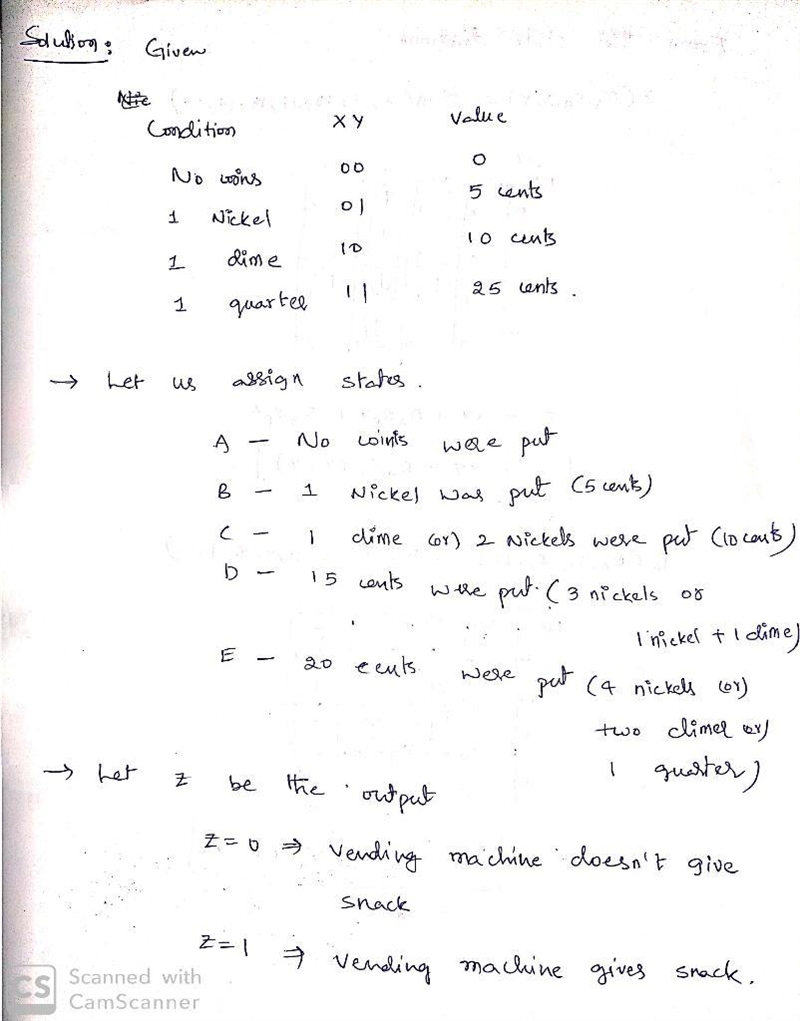 Solution: Given
Condition XY Value
No coins 00 0
1 Nickel 01 5 cents
1 dime 10 10 cents
1 quarter 11 25 cents.
→ Let us assign states.
A - No coints were put
B - 1 Nickel was put (5 cents)
C - 1 dime (or) 2 Nickels were put (10 cents)
D - 15 cents were put. (3 nickels or
1 nickel + 1 dime)
E - 20 cents were put (4 nickels (or)
two dimes or)
1 quarter)
→ Let Z be the output
Z=0 ⇒ Vending machine doesn't give
snack
Z=1 ⇒ Vending machine gives snack.
CS Scanned with
CamScanner